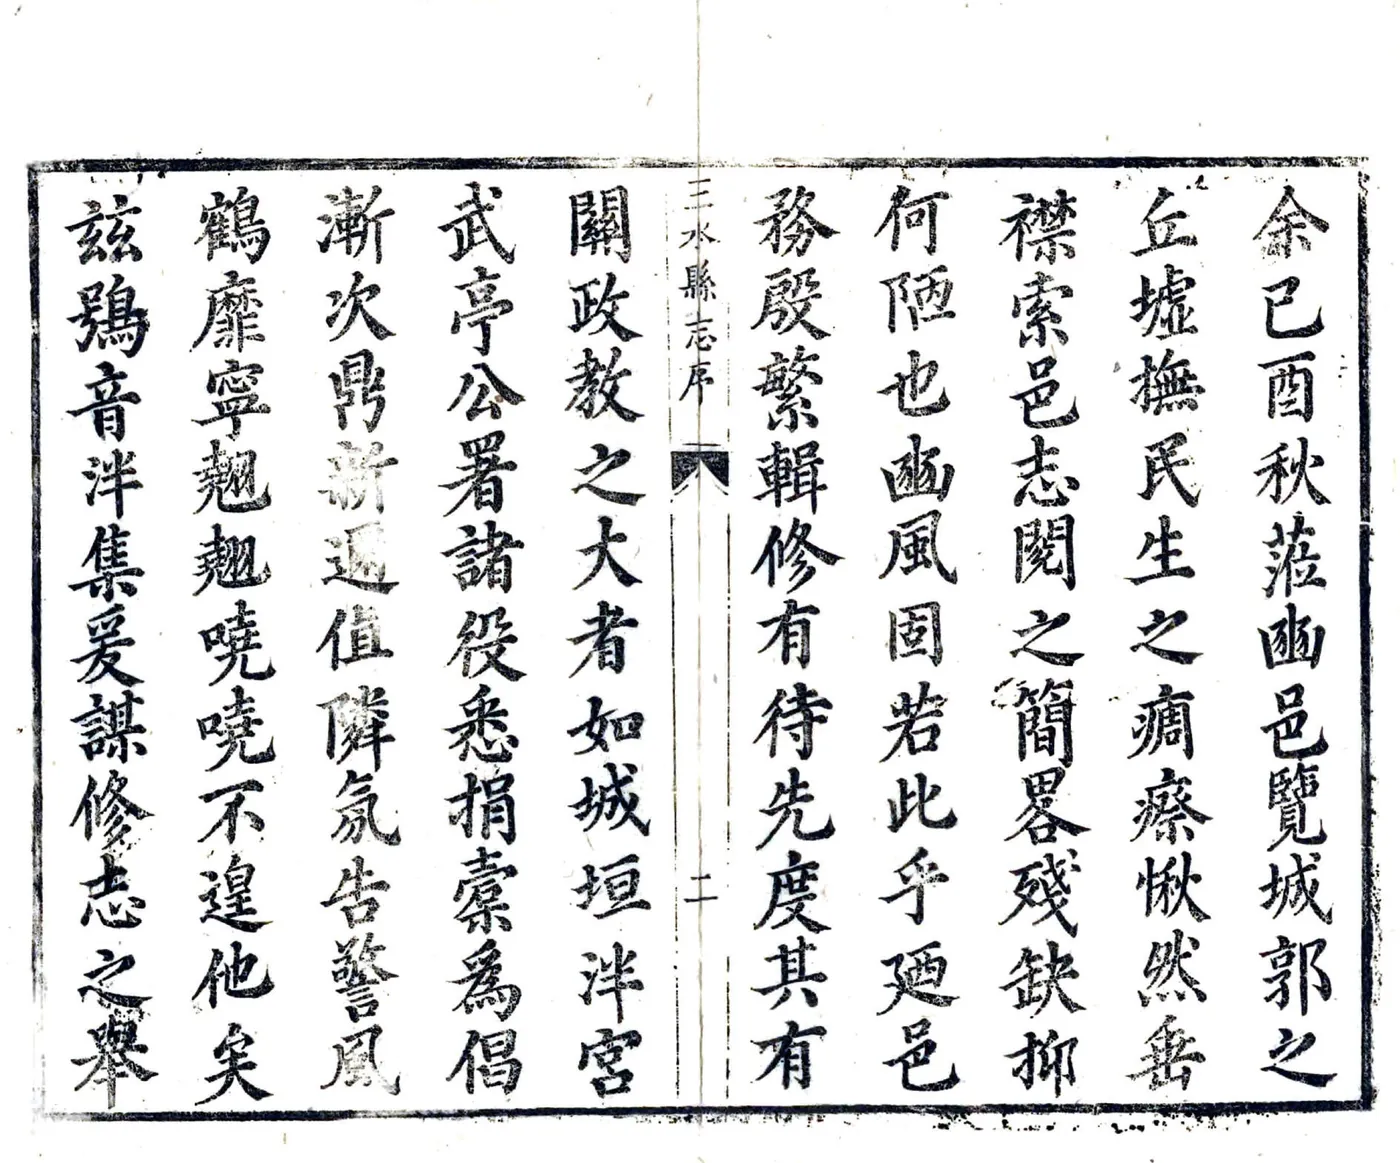 余已酉秋蒞豳邑覽城郭之
丘墟撫民生之痌瘝愀然垂
襟索邑志閱之簡畧殘缺抑
何陋也豳風固若此乎廼邑
務殷繁輯修有待先度其有
三水縣志序
二
關政教之大者如城垣泮宮
武亭公署諸役悉捐橐爲倡
漸次鼎新遍值隣氛告警風
鶴靡寧翹翹嘵嘵不遑他矣
兹鴞音泮集爰謀修志之舉